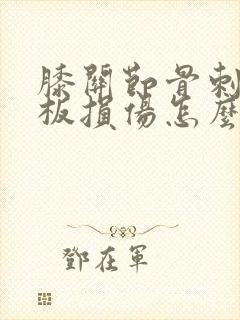 膝關節骨刺
板損傷怎麼
鄧在軍